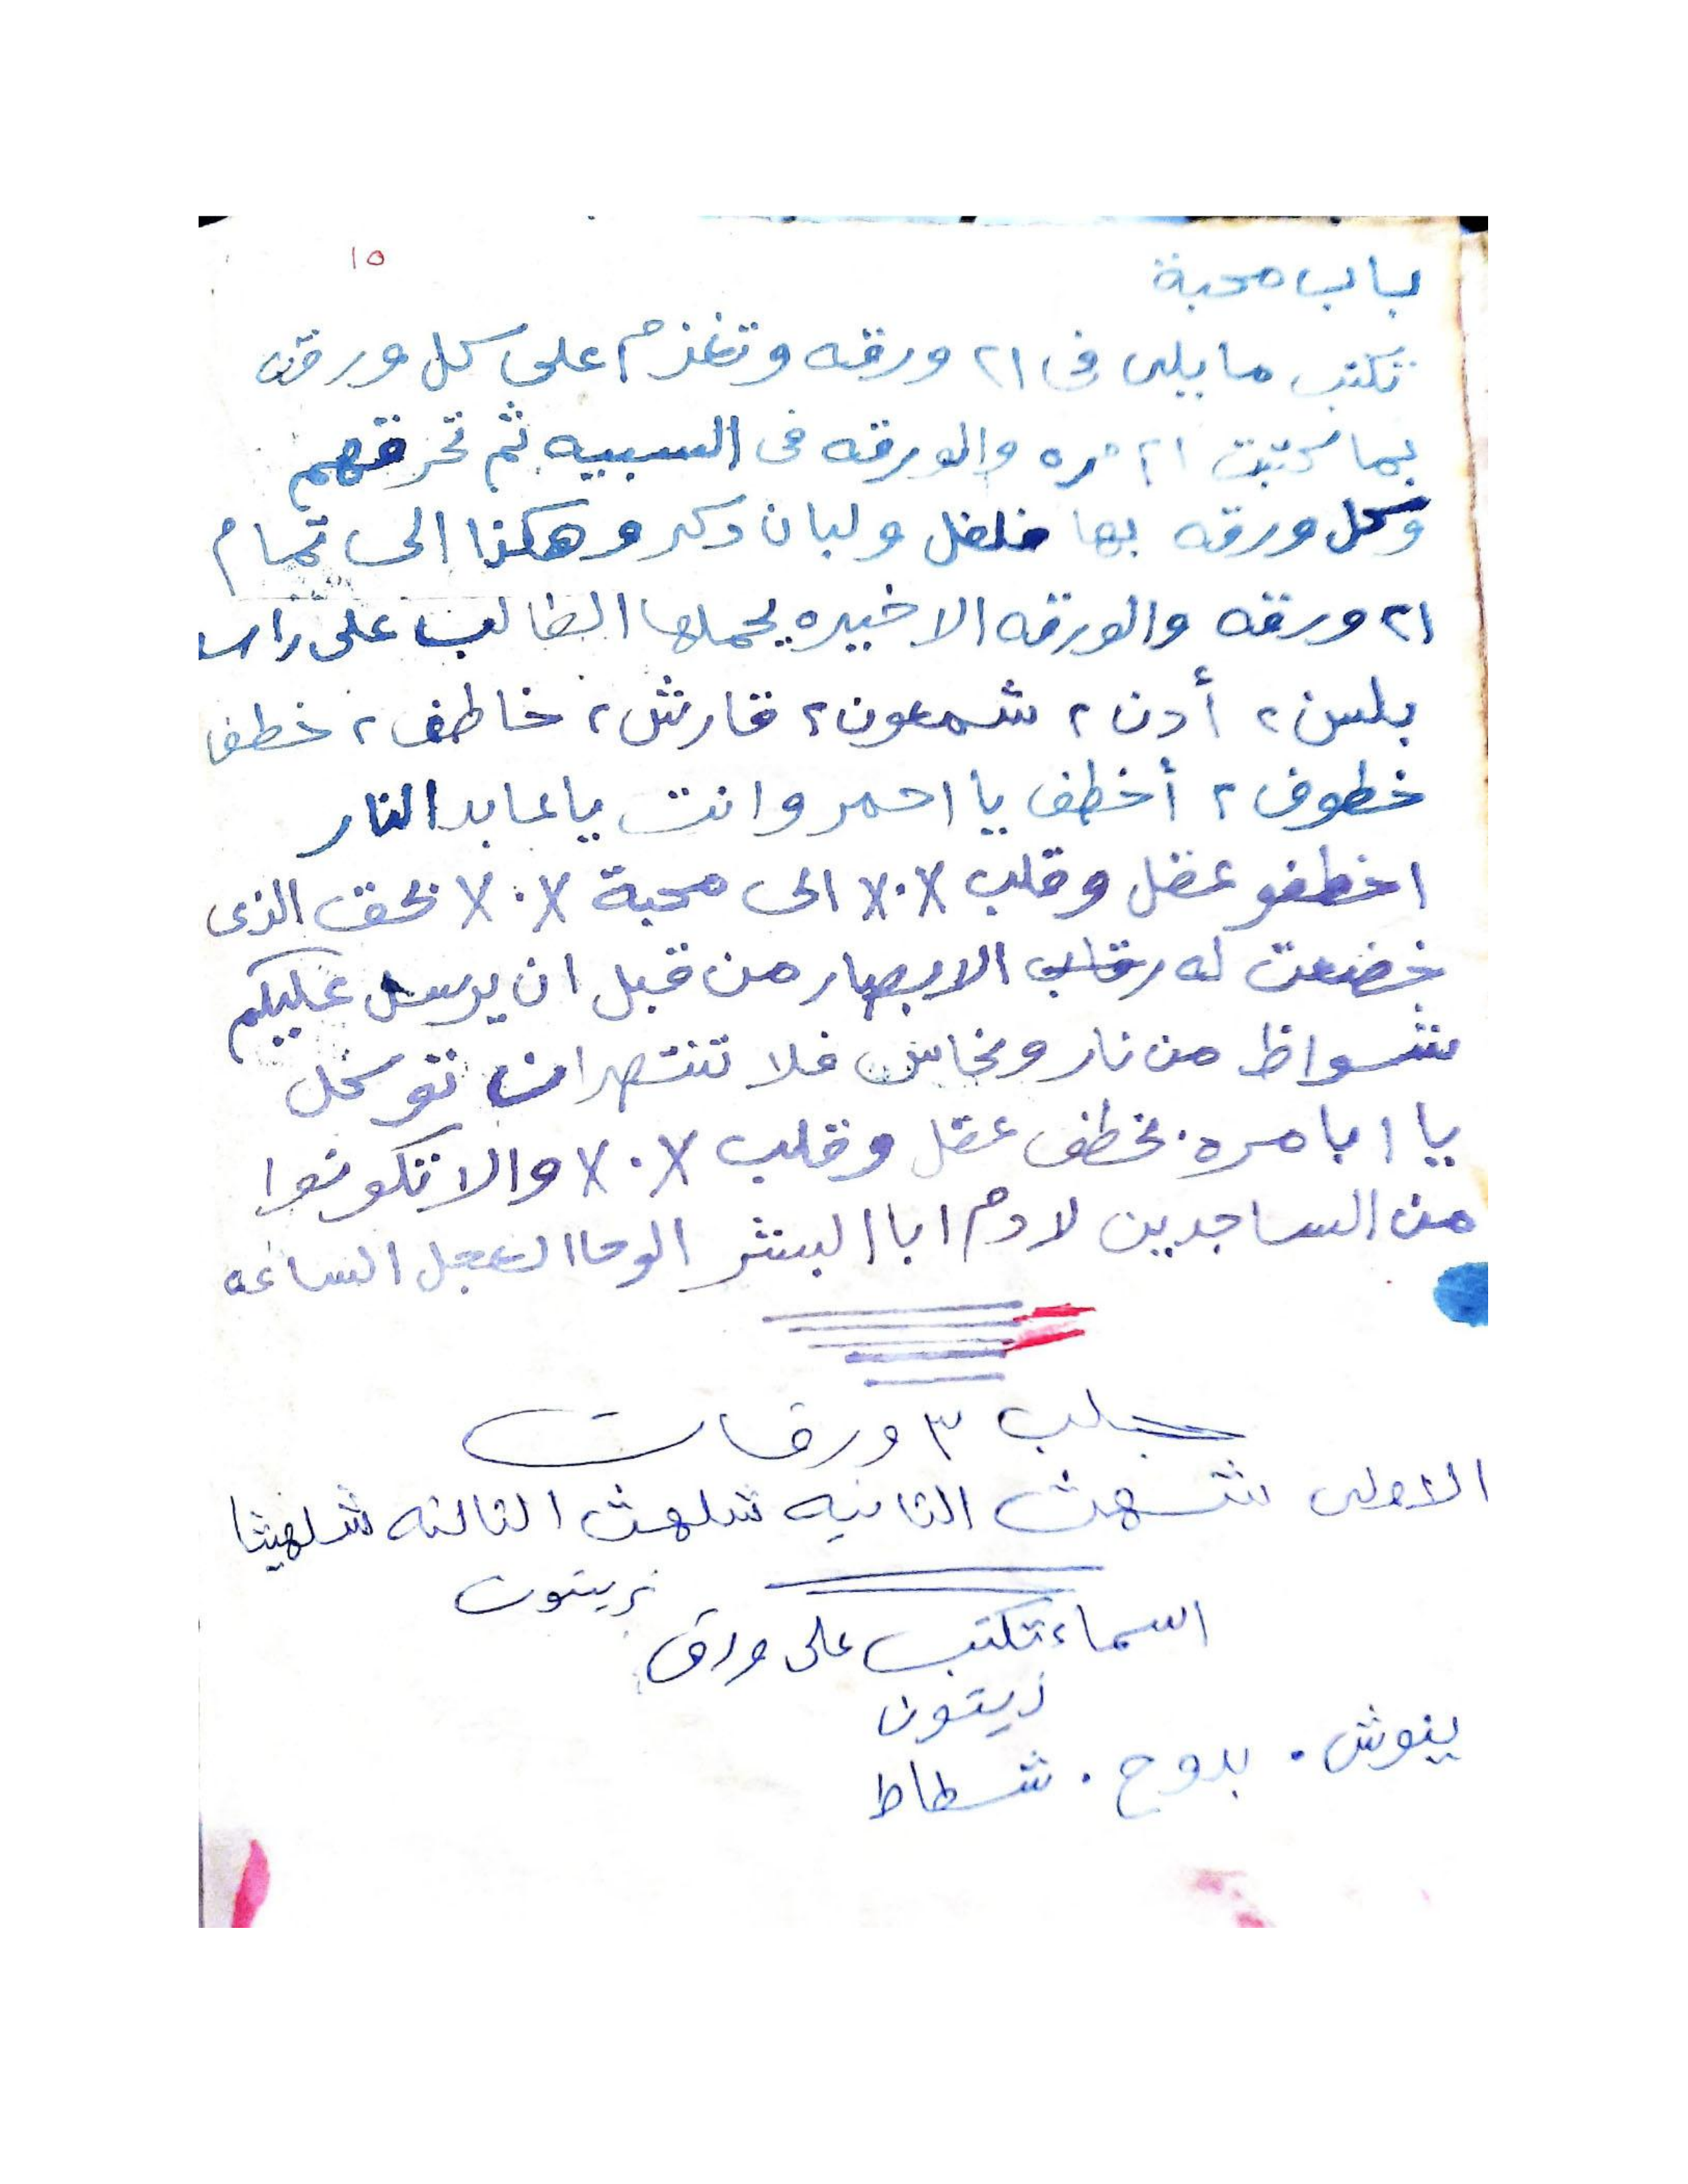 ١٥
باب محبة
تكتب مايلى فى ٢١ ورقه وتغزم على كل ورقه
بما كتبت ٢١ مره والورقه فى السبيه ثم تحرقهم
وكل ورقه بها فلفل ولبان دكر وهكذا الى تمام
٢١ ورقه والورقه الاخيره يحملها الطالب على راس
بلس ٢ أدن ٢ شمعون ٢ قارش ٢ خاطف ٢ خطف
خطوف ٢ أخطف يا احمر وانت ياعابد النار
اخطفو عقل وقلب ٧٠٧ الى محبة ٧٠٧ بحق الذى
خضعت له رقاب الابصار من قبل ان يرسل عليكم
شواظ من نار ونحاس فلا تنتصران توكل
يا ابا مره بخطف عقل وقلب ٧٠٧ والا تكونوا
من الساجدين لادم ابا البشر الوحا العجل الساعه
جلب ٣ ورقات
الاولى شهث الثانيه شلهث الثالثه شلهيثا
اسماء تكتب على ورق زيتون
زيتون
ينوش . بدوح . شطاط